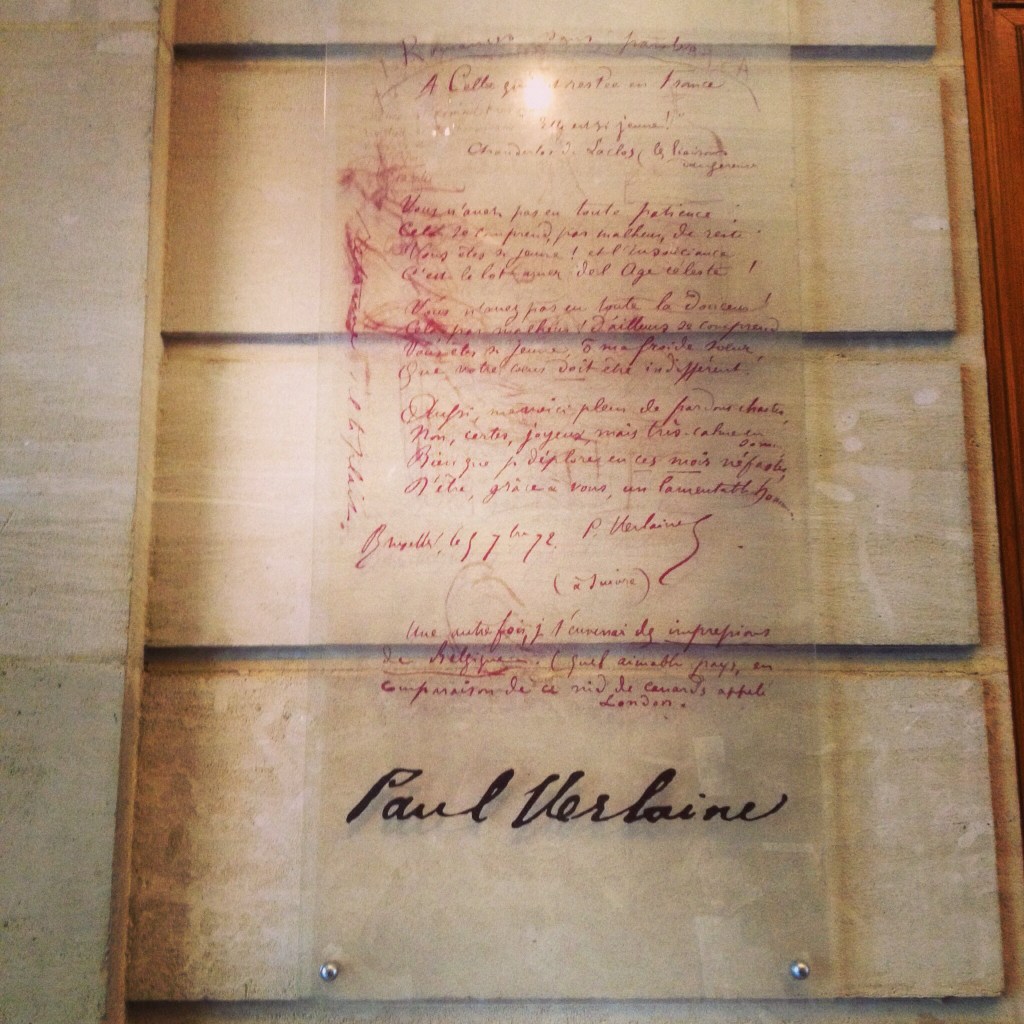 Romances sans paroles
A Celle qui restée en France
si jeune!"
Choderlos de Laclos (les liaisons
dangereuses
Vous n'avez pas eu toute patience :
Cela se comprend par malheur, de reste
Vous êtes si jeune ! et l'insouciance
C'est le lot amer de l'âge céleste !
Vous n'avez pas eu toute la douceur !
Cela par malheur ! d'ailleurs se comprend
Vous êtes si jeune, ô ma froide soeur,
Que votre coeur doit être indifférent.
Aussi, me voici, plein de pardons chastes,
Non, certes, joyeux, mais très-calme en
somme
Bien que je déplore en ces mois néfastes
D'être, grâce à vous, un lamentable homme
Bruxelles, le 5 7bre 72. P. Verlaine
(à suivre)
Une autre fois, j t'enverrai des impressions
de Belgique. (Quel aimable pays, en
comparaison de ce nid de canards appelé
London.
Paul Verlaine